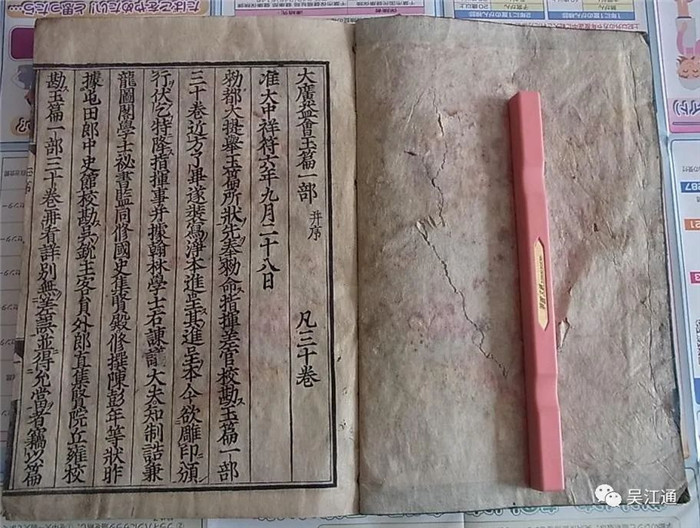 大廣益會玉篇一部 并序 凡三十卷
准大中祥符六年九月二十八日
勑都大提舉玉篇所狀先奉勑命指揮差官校勘玉篇一部
三十卷近方了畢遂裝寫淨本進呈其進呈本今欲雕印頒
行伏乞特降指揮事并據翰林學士右諫議大夫知制誥兼
龍圖閣學士祕書監同修國史集賢殿修撰陳彭年等狀昨
據屯田郎中史館校勘吳銳主客員外郎直集賢院丘雍校
勘玉篇一部三十卷再看詳別無差誤並得允當者竊以篇
たばこをやめたい！と思った
吴江通